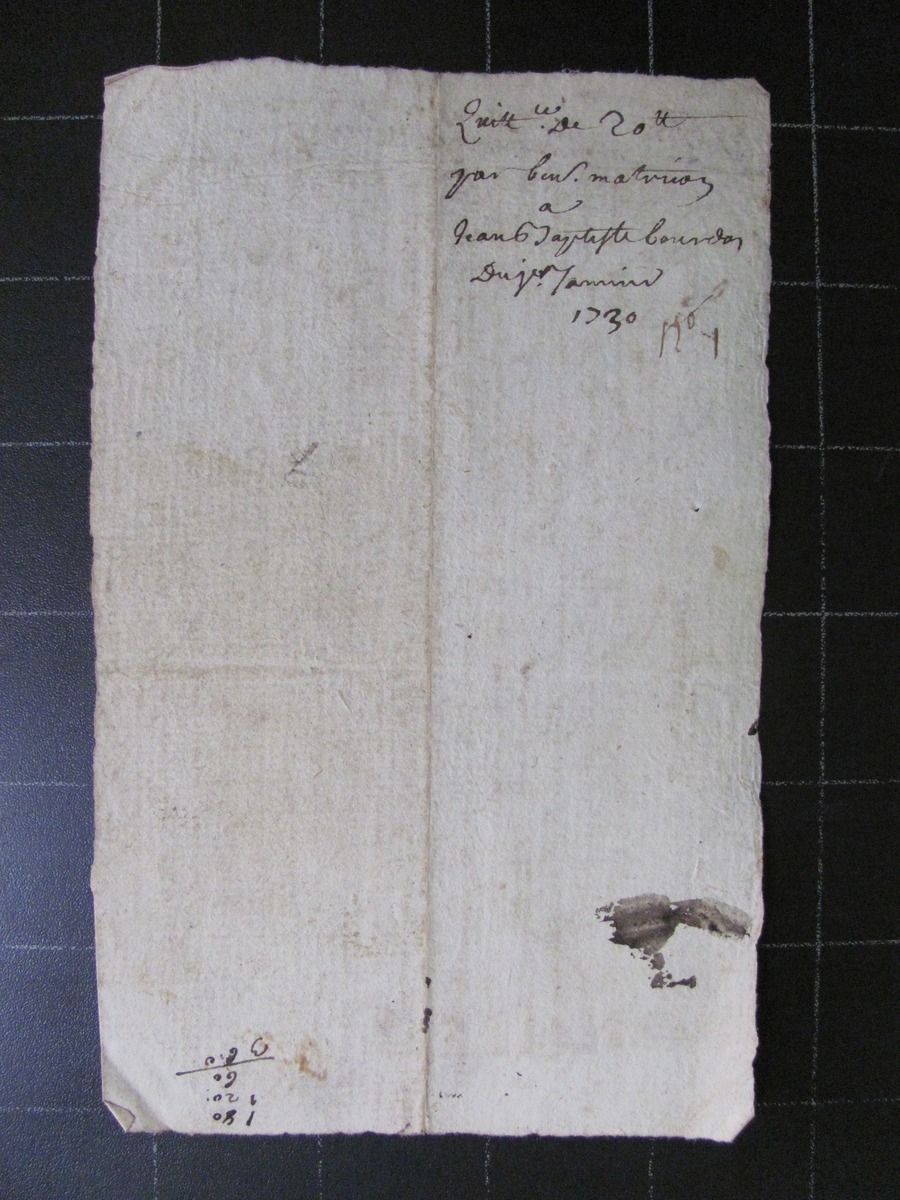 Quitt.ce De 20tt
par ben. matrion
a
Jean Baptiste bourdon
Du 1er Janvier
1730
no 1
180
120
60
360